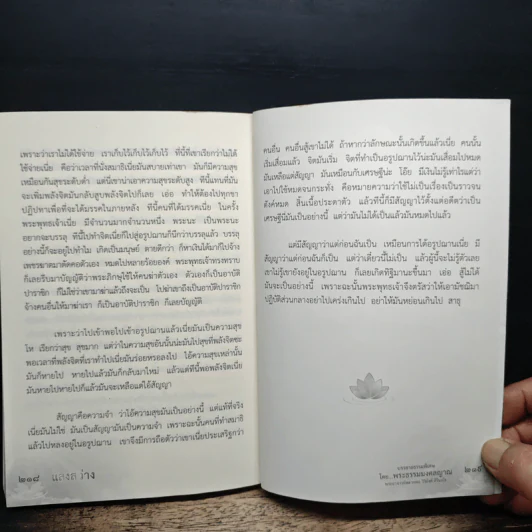 เพราะว่าเราไม่ได้ใช้จ่าย เราเก็บไว้เก็บไว้เก็บไว้ ทีนี้ที่เขาเรียกว่าไม่ได้
ใช้จ่ายเนี่ย คือว่าเวลาที่นั่งสมาธิเนี่ยมันสบายเท่าเขา มันก็มีความสุข
เหมือนกันสุขระดับต่ำ แต่นี่เขาน่าเอาความสุขระดับสูง ทีนี้แทนที่มัน
จะเพิ่มพลังจิตมันกลับสูบพลังจิตไปก็เลย เออ ทำให้ต้องไปทุกขา
ปฏิปทาเพื่อที่จะได้มรรคในภายหลัง ทีนี้คนที่ได้มรรคเนี่ย ในครั้ง
พระพุทธเจ้าเนี่ย มีจำนวนมากจำนวนหนึ่ง พระนะ เป็นพระนะ
อยากจะบรรลุ ทีนี้ไปทำจิตเนี่ยก็ไปสู่อรูปฌานก็นึกว่าบรรลุแล้ว บรรลุ
อย่างนี้ก็จะอยู่ไปทำไม เกิดเป็นมนุษย์ ตายดีกว่า ก็หาเงินได้มาก็ไปจ้าง
เพชรฆาตมาตัดคอตัวเอง หมดไปหลายร้อยองค์ พระพุทธเจ้าทรงทราบ
ก็เลยรีบมาบัญญัติว่าพระภิกษุใช้ให้คนฆ่าตัวเอง ตัวเองก็เป็นอาบัติ
ปาราชิก ก็ไม่ใช่ว่าเขามาฆ่าแล้วถึงจะเป็น ไปฆ่าเขาถึงเป็นอาบัติปาราชิก
จ้างคนอื่นให้มาฆ่าเรา ก็เป็นอาบัติปาราชิก ก็เลยบัญญัติ
เพราะว่าไปเข้าพอไปเข้าอรูปฌานแล้วเนี่ยมันเป็นความสุข
โห เรียกว่าสุข สุขมาก แต่ว่าในความสุขอันนั้นน่ะมันไปสุขที่พลังจิตซะ
พอเวลาที่พลังจิตที่เราทำไปเนี่ยมันร่อยหรอลงไป ไอ้ความสุขเหล่านั้น
มันก็หายไป หายไปแล้วมันก็กลับมาใหม่ แล้วแต่ทีนี้พอพลังจิตเนี่ย
มันหายไปหายไปก็แล้วมันจะเหลือแต่ไอ้สัญญา
สัญญาคือความจำ ว่าไอ้ความสุขมันเป็นอย่างนี้ แต่แท้ที่จริง
เนี่ยมันไม่ใช่ มันเป็นสัญญามันเป็นความจำ เพราะฉะนั้นคนที่ทำสมาธิ
แล้วไปหลงอยู่ในอรูปฌาน เขาจึงมีการถือตัวว่าเขาเนี่ยประเสริฐกว่า
๒๑๘ แสงสว่าง
คนอื่น คนอื่นสู้เขาไม่ได้ ถ้าหากว่าลักษณะนั้นเกิดขึ้นแล้วเนี่ย คนนั้น
เริ่มเสื่อมแล้ว จิตมันเริ่ม จิตที่ทำเป็นอรูปฌานไว้น่ะมันเสื่อมไปหมด
มันเหลือแต่สัญญา มันเหมือนกับเศรษฐีนะ โอ้ย มีเงินไม่รู้เท่าไรแต่ว่า
เอาไปใช้หมดจนกระทั่ง คือหมายความว่าใช้ไม่เป็นเรื่องเป็นราวจน
ตังค์หมด สิ้นเนื้อประดาตัว แล้วทีนี้ก็มีสัญญาไว้ตั้งแต่อดีตว่าเป็น
เศรษฐีนี่มันเป็นอย่างนี้ แต่ว่ามันไม่ได้เป็นแล้วมันหมดไปแล้ว
แต่มีสัญญาว่าแต่ก่อนฉันเป็น เหมือนการได้อรูปฌานเนี่ย มี
สัญญาว่าแต่ก่อนฉันเป็น แต่ว่าเดี๋ยวนี้ไม่เป็น แล้วผู้นี้จะไม่รู้ตัวเลย
เขาไม่รู้เขายังอยู่ในอรูปฌาน ก็เลยเกิดทิฐิมานะขึ้นมา เออ สู้ไม่ได้
ฉันจะเป็นอย่างนี้ เพราะฉะนั้นพระพุทธเจ้าจึงตรัสว่าให้เอามัชฌิมา
ปฏิบัติส่วนกลางอย่าไปเคร่งเกินไป อย่าให้มันหย่อนเกินไป สาธุ
บรรยายธรรมพิเศษ
โดย...พระธรรมมงคลญาณ
๒๑๙